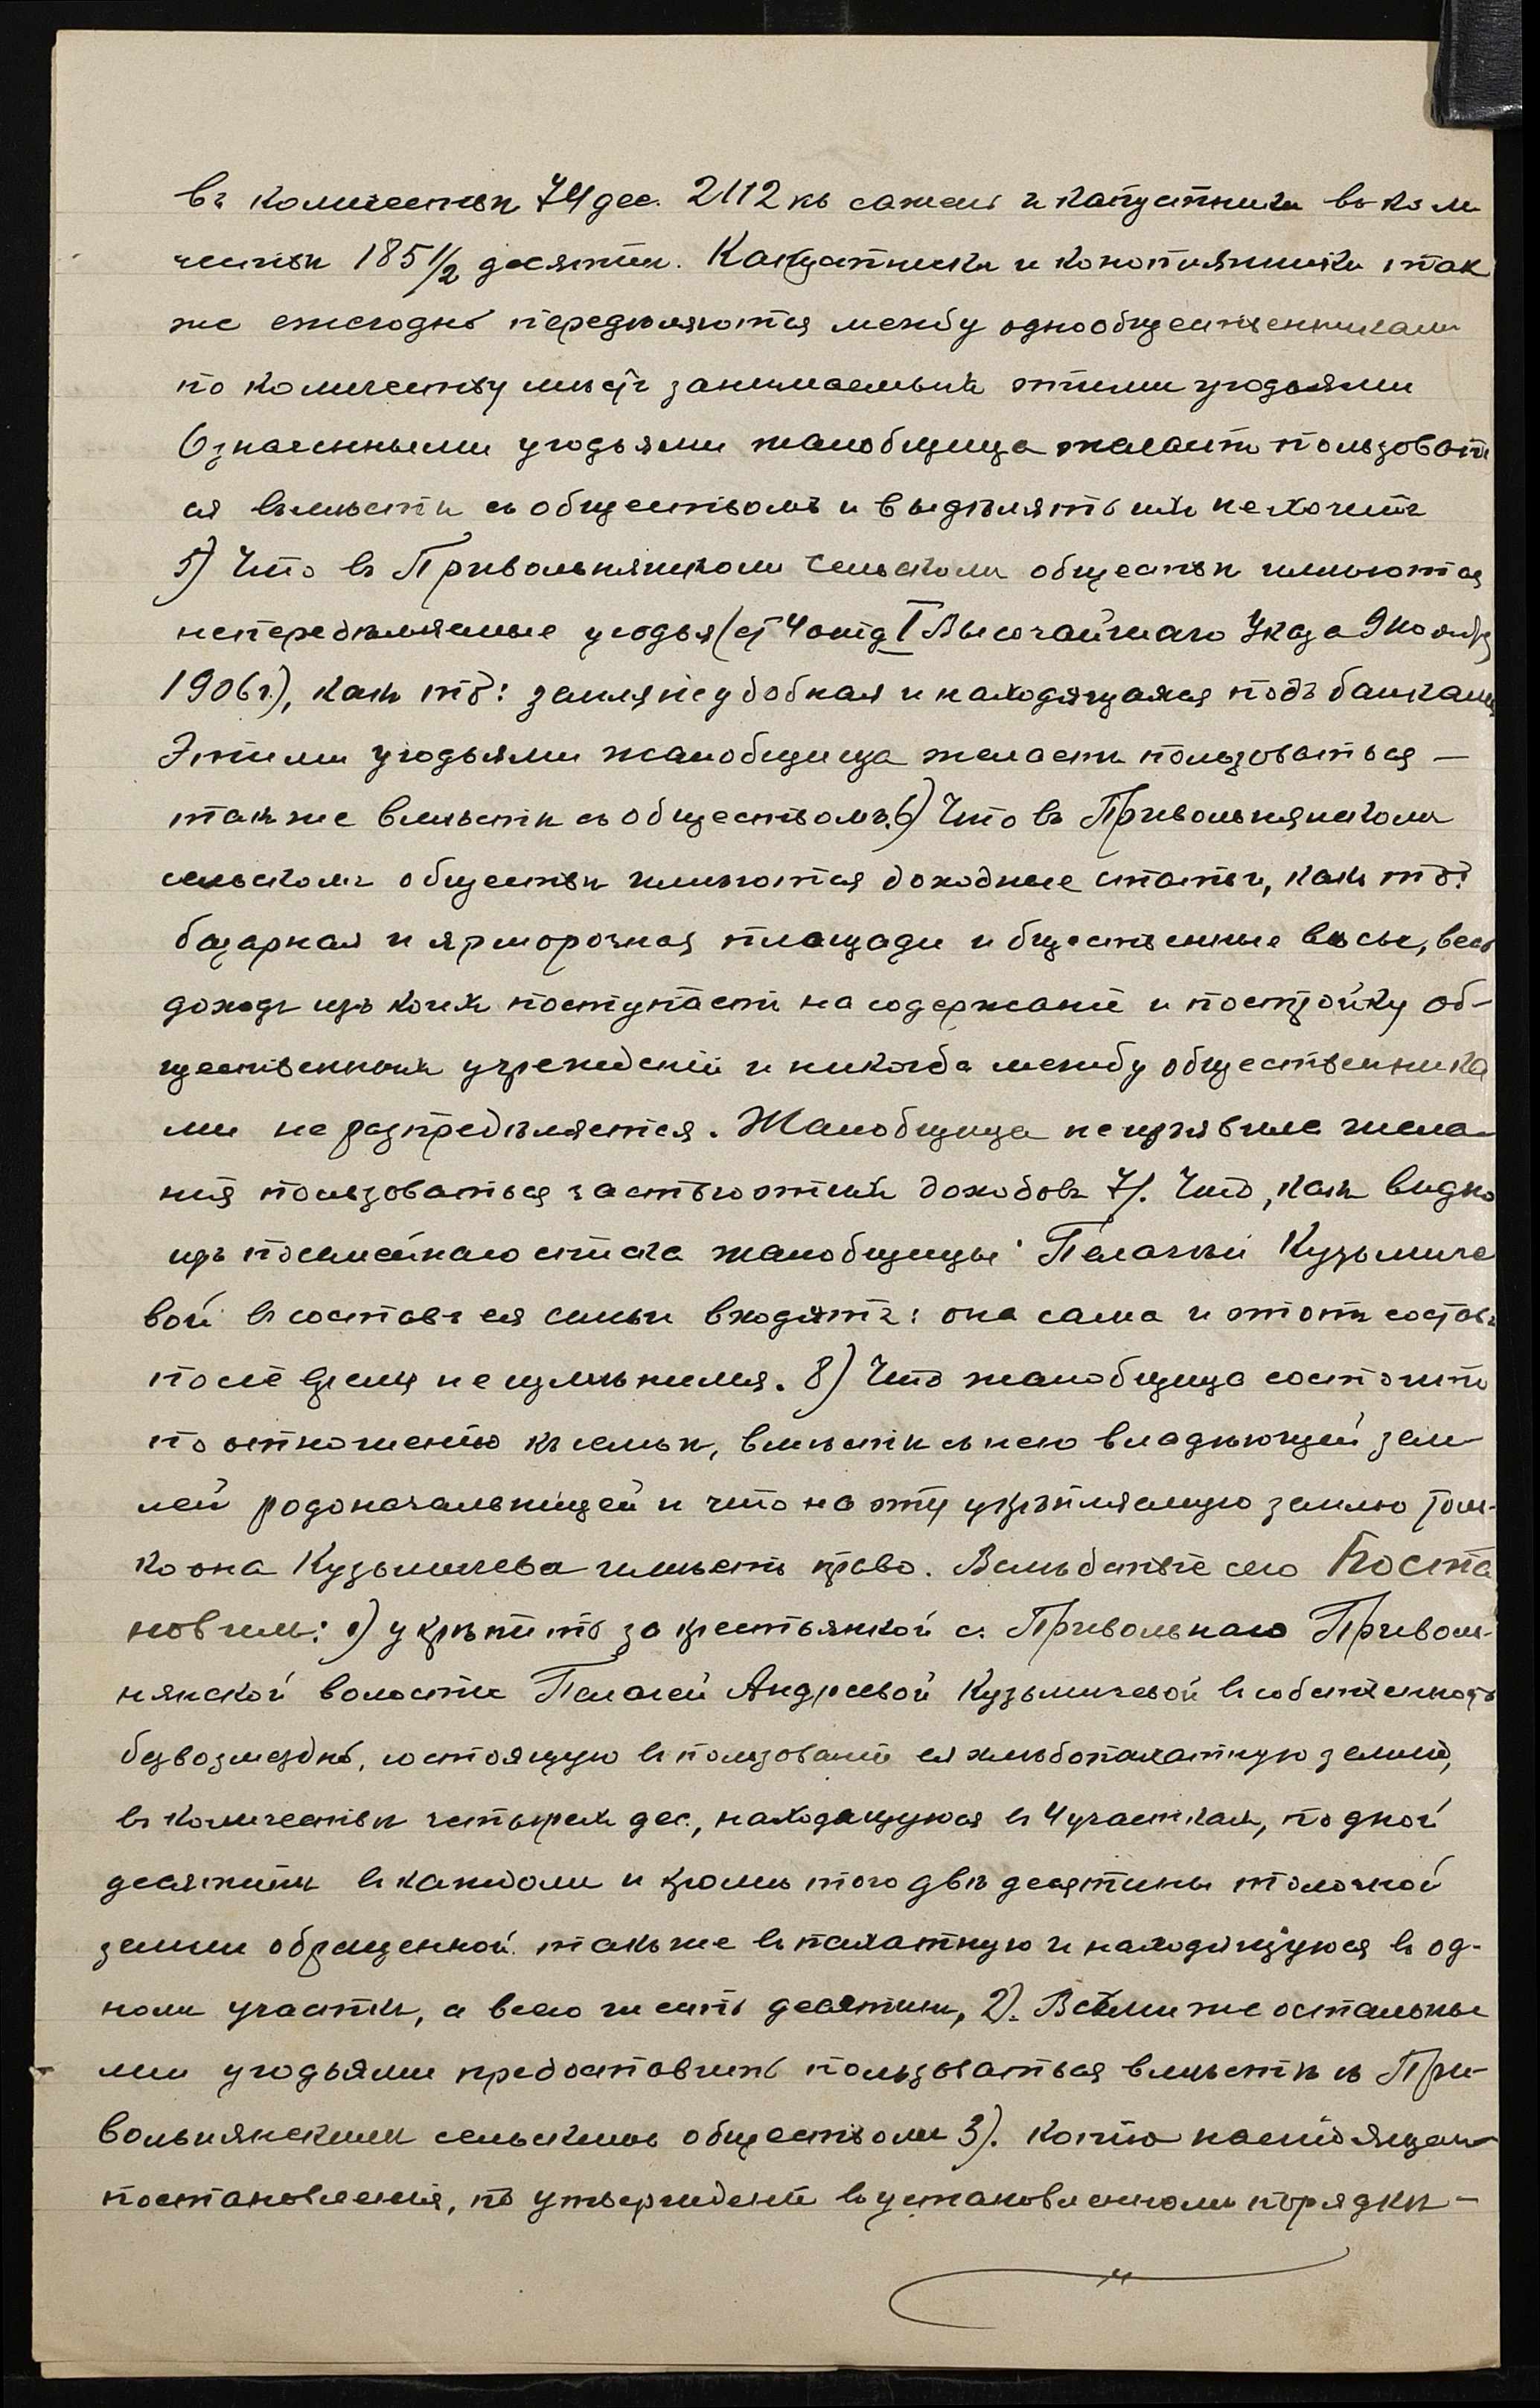 въ количествѣ 74 дес. 2112 кв сажень и капустники въ коли
чествѣ 185 1/2 десятин. Капустники и конопляники так
же ежегодно передѣляются между однообщественниками
по количеству мѣстъ занимаемыхъ этими угодьями
Означенными угодьями жалобщица желаетъ пользоват
ся вмѣстѣ съ обществомъ и выдѣлять ихъ не хочетъ
5) Что въ Привольнянскомъ сельскомъ обществѣ имѣются
непередѣляемые угодья (ст 4 отд I Высочайшаго Указа 9 ноября
1906 г.), какъ то: земля неудобная и находящаяся подъ балками
Этими угодьями жалобщица желаетъ пользоваться —
также вмѣстѣ съ обществомъ. 6) Что въ Привольнянскомъ
сельскомъ обществѣ имѣются доходные статьи, какъ то:
базарная и ярморочная площади и бщественные вѣсы, весь
доходъ изъ коихъ поступаетъ на содержаніе и постройку об-
щественныхъ учрежденій и никогда между общественника
ми не разпредѣляется. Жалобщица не изъявила жела-
нія пользоваться частью этихъ доходовъ 7). Что, какъ видно
изъ посемейнаго списка жалобщицы Пелагѣи Кузьмиче
вой въ составъ ея семьи входятъ: она сама и этотъ составъ
после времени не измѣнился. 8) Что жалобщица состоитъ
по отношенію къ семьѣ, вмѣстѣ съ нею владѣющей зем-
лей родоначальницей и что на эту укрѣпляемую землю толь-
ко она Кузьмичева имѣетъ право. Вслѣдствіе сего Поста
новилъ: 1) укрѣпить за крестьянкой с. Привольнаго Приволь-
нянской волости Пелагей Андреевой Кузьмичевой въ собственность
безвозмездно, состоящую въ пользованіи ея хлѣбопахатную землю,
въ количествѣ четырехъ дес., находящуюся въ 4 участкахъ, по дной
десятинѣ въ каждомъ и кромѣ того двѣ десятины толочной
земли обращенной также въ пахатную и находящуюся въ од-
номъ участкѣ, а всего шесть десятинъ, 2). Всѣми же остальны
ми угодьями предоставить пользоваться вмѣстѣ съ При-
вольнянскимъ сельскимъ обществомъ 3). копію настоящаго
постановленія, по утвержденіи въ установленномъ порядкѣ —